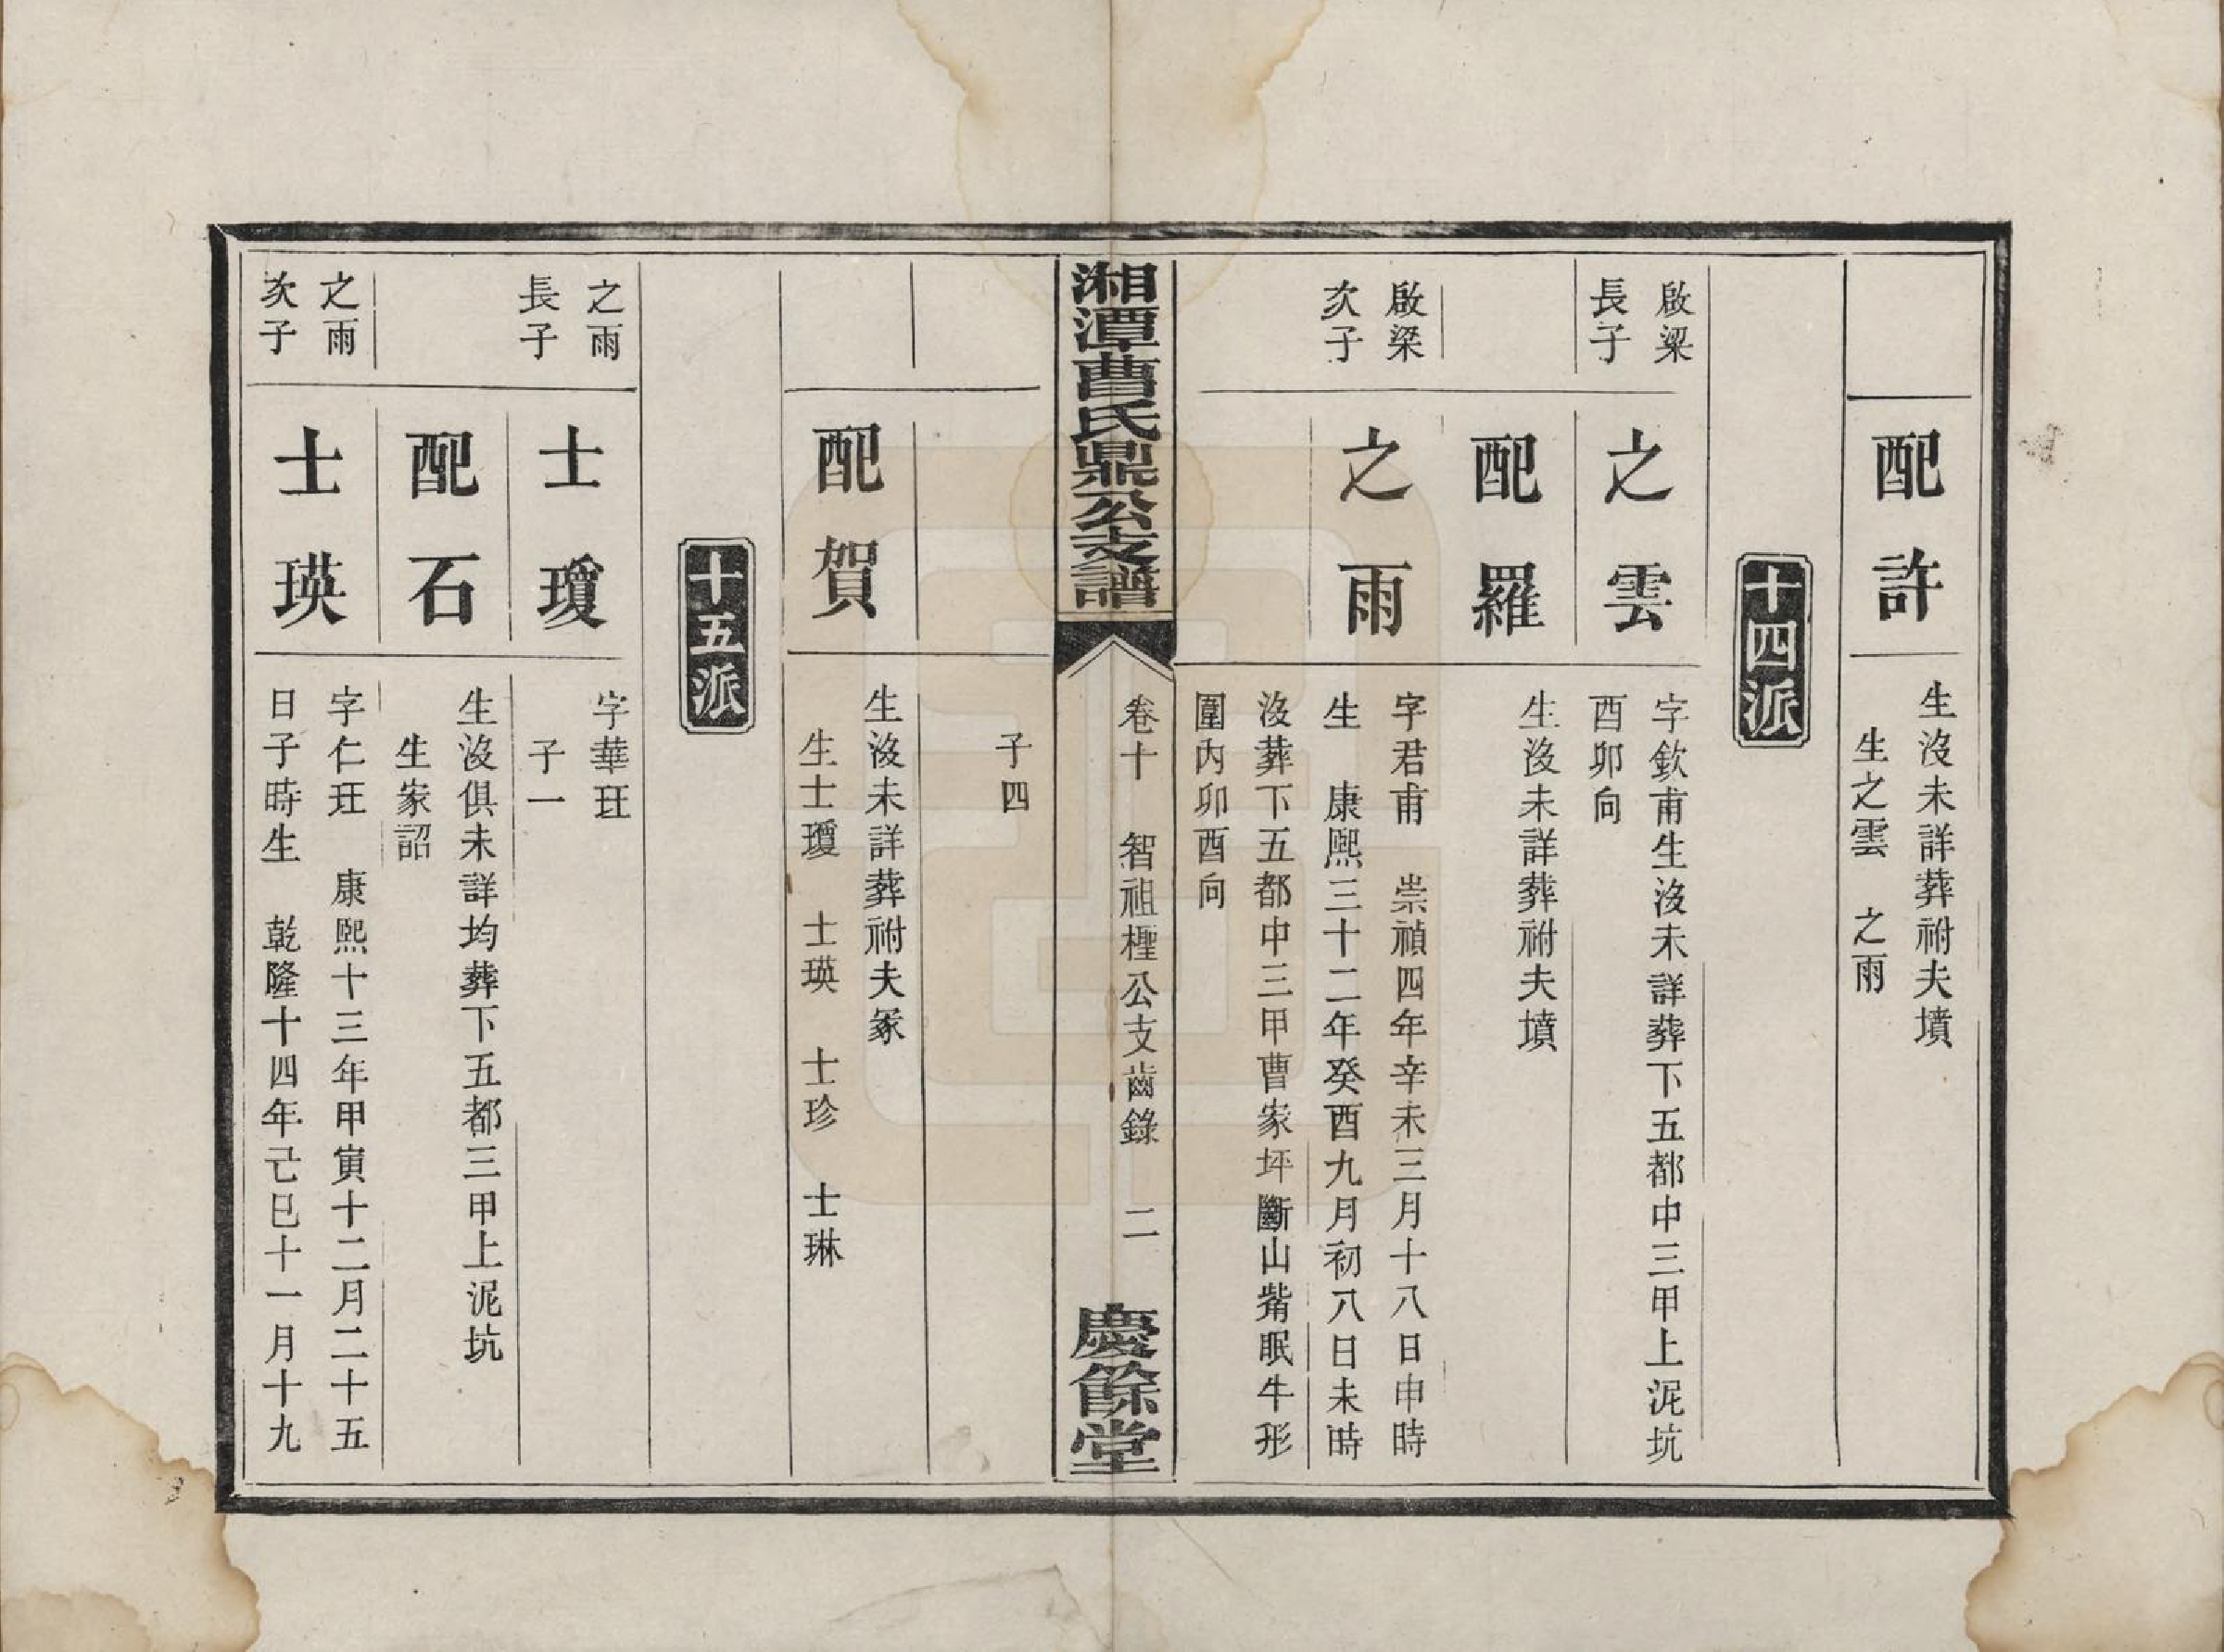 配許
生沒未詳葬祔夫墳
生之雲　之雨
十四派
啟梁
長子
之雲
字欽甫生沒未詳葬下五都中三甲上泥坑
酉卯向
配羅
生沒未詳葬祔夫墳
啟梁
次子
之雨
字君甫　崇禎四年辛未三月十八日申時
生　康熙三十二年癸酉九月初八日未時
沒葬下五都中三甲曹家坪斷山觜眠牛形
圍內卯酉向
湘潭曹氏鼎公支譜
卷十　智祖㮙公支齒錄　二
慶餘堂
子四
配賀
生沒未詳葬祔夫冢
生士瓊　士瑛　士珍　士琳
十五派
之雨
長子
士瓊
字華玨
子一
配石
生沒俱未詳均葬下五都三甲上泥坑
生家詔
之雨
次子
士瑛
字仁玨　康熙十三年甲寅十二月二十五
日子時生　乾隆十四年己巳十一月十九